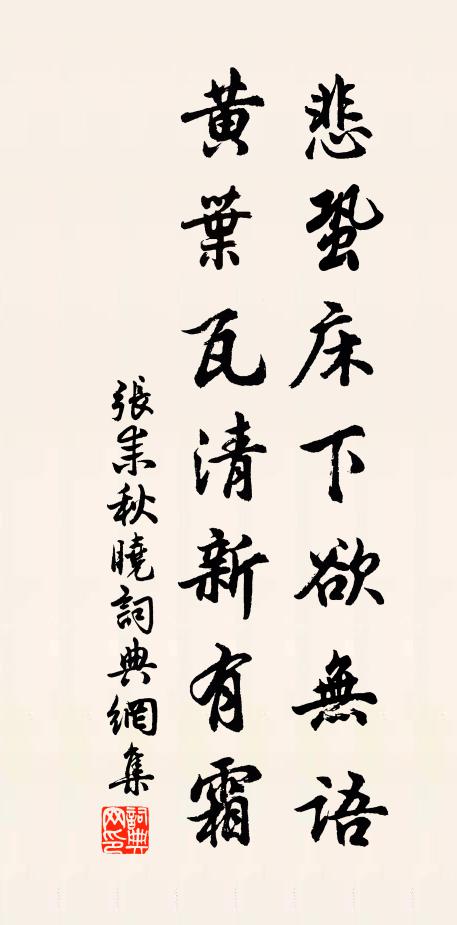 悲蛩床下欲無語
黃葉瓦清新有霜
張耒秋曉詞典網集
詞典网印